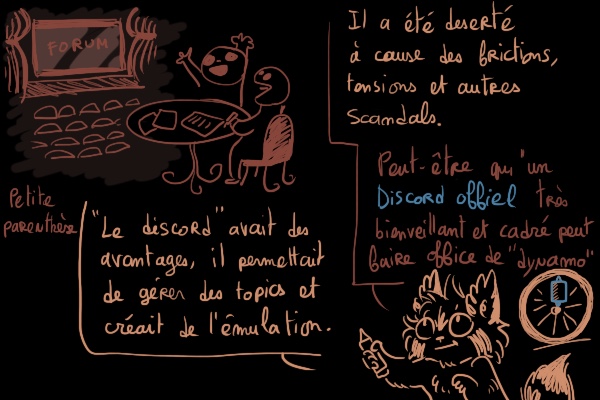 FORUM
Petite
parenthèse
"Le discord" avait des
avantages, il permettait
de gérer des topics et
créait de l'émulation.
Il a été deserté
à cause des frictions,
tensions et autres
scandals.
Peut-être qu'un
Discord offiel très
bienveillant et cadré peut
faire office de "dynamo"